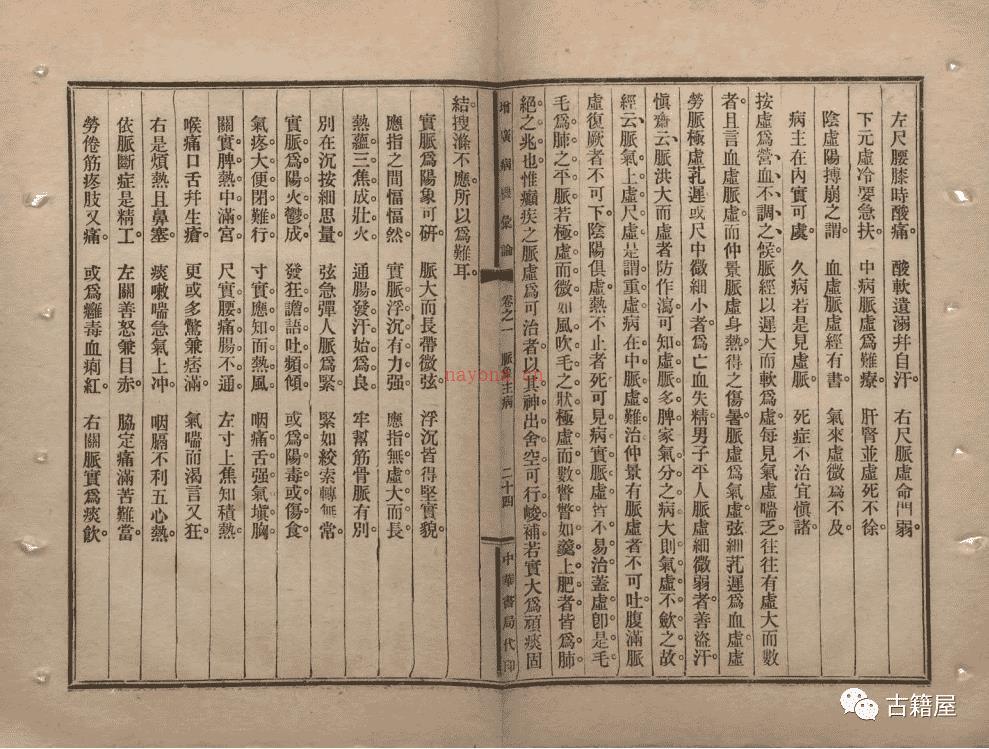 左尺腰膝時酸痛。　酸軟遺溺幷自汗。　右尺脈虛命門弱。
下元虛冷要急扶　中病脈虛爲難療。　肝腎並虛死不徐
陰虛陽搏崩之謂。　血虛脈虛經有書　氣來虛微爲不及
病主在內實可虞　久病若是見虛脈。　死症不治宜愼諸
按虛爲營血不調之候脈經以遲大而軟爲虛每見氣虛喘乏往往有虛大而數
者且言血虛脈虛而仲景脈虛身熱得之傷暑脈虛爲氣虛弦細芤遲爲血虛虛
勞脈極虛芤遲或尺中微細小者爲亡血失精男子平人脈虛細微弱者善盜汗
愼齋云脈洪大而虛者防作瀉可知虛脈多脾家氣分之病大則氣虛不斂之故
經云脈氣上虛尺虛是謂重虛病在中脈虛難治仲景有脈虛者不可吐腹滿脈
虛復厥者不可下陰陽俱虛熱不止者死可見病實脈虛皆不易治蓋虛卽是毛
毛爲肺之平脈若極虛而微如風吹毛之狀極虛而數瞥瞥如羹上肥者皆爲肺
絕之兆也惟癲疾之脈虛爲可治者以其神出舍空可行峻補若實大爲頑痰固
結搜滌不應所以爲難耳。
增廣病機彙論　卷之一　脈象主病　二十四　中華書局代印
實脈爲陽象可硏　脈大而長帶微弦　浮沉皆得堅實貌。
應指之間愊愊然　實脈浮沉有力强　應指無虛大而長
熱蘊三焦成壯火　通腸發汗始爲良　牢幫筋骨脈有別
別在沉按細思量。　弦急彈人脈爲緊　緊如絞索轉無常。
實脈爲陽火鬱成　發狂譫語吐頻傾　或爲陽毒或傷食
氣疼大便閉難行　寸實應知面熱風　咽痛舌强氣塡胸
關實脾熱中滿宮　尺實腰痛腸不通　左寸上焦知積熱
喉痛口舌幷生瘡。　更或多驚兼痞滿　氣喘而渴言又狂
右是煩熱且鼻塞。　痰嗽喘急氣上冲　咽膈不利五心熱。
依脈斷症是精工　左關善怒兼目赤　脇定痛滿苦難當
勞倦筋疼肢又痛　或爲癰毒血痢紅　右關脈强實爲痰飮
nayona.cn
古籍屋